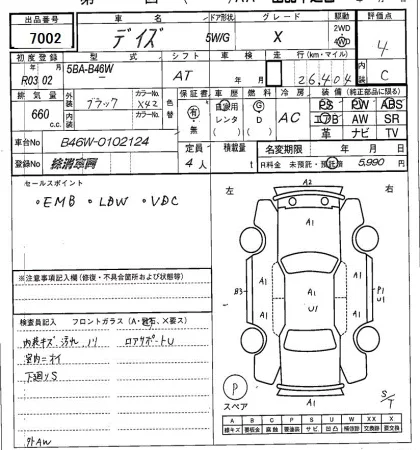 出品番号 車名 ドア形状 グレード 駆動 評価点
7002 デイズ 5W/G X 2WD 4WD 4
初度登録 型式 シフト 車検 走行(km・マイル) 内装
R03年02月 5BA-B46W AT 年 月 26,404 C
排気量 外装 カラーNo. 色替 保証書 車歴 燃料 冷房 装備(純正部品に限る)
660 c.c. ブラック X42 有・無 自家用 レンタ G D AC PS PW ABS
エアB AW SR
革 ナビ TV
内装 カラーNo.
車台No B46W-0102124 定員 積載量 名変期限 年 月 日
登録No 4人 t R料金 未預託・預託済 5,990円
セールスポイント
・EMB ・LDW ・VDC
左 右
A2
A1
B3 A1 A1 A1 P1
U1 U1
A1
※注意事項記入欄(修復・不具合箇所および状態等)
検査員記入 フロントガラス(A・飛石、X要ス)
内装キズ、汚れ ロアサポートU
室内ニオイ
下廻りS
外AW
P
スペア
S/T
A B C P S U W X XX X
線キズ 要板金 腐蝕 要塗装 サビ 凹凸 補修跡 交換跡 要交換